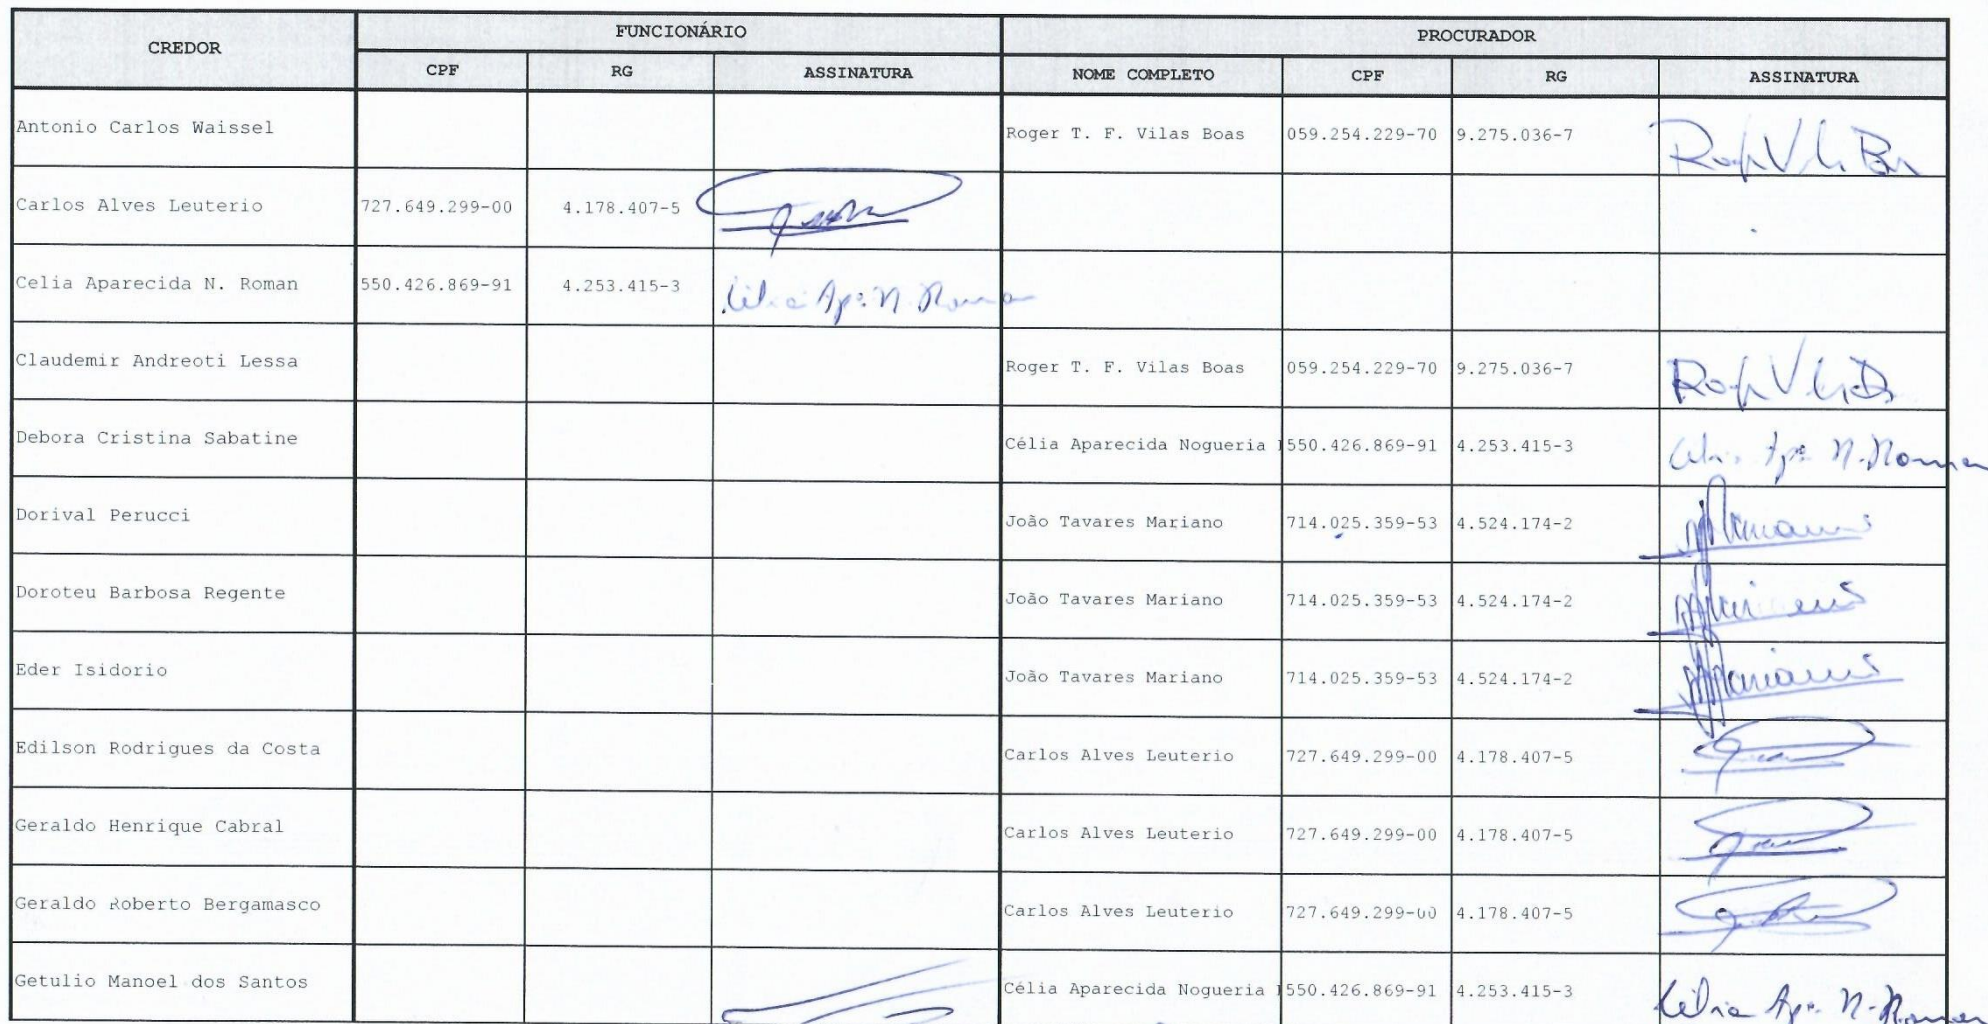 CREDOR FUNCIONÁRIO PROCURADOR
CPF RG ASSINATURA NOME COMPLETO CPF RG ASSINATURA
Antonio Carlos Waissel Roger T. F. Vilas Boas 059.254.229-70 9.275.036-7
Carlos Alves Leuterio 727.649.299-00 4.178.407-5
Celia Aparecida N. Roman 550.426.869-91 4.253.415-3 Célia Apª N. Roman
Claudemir Andreoti Lessa Roger T. F. Vilas Boas 059.254.229-70 9.275.036-7
Debora Cristina Sabatine Célia Aparecida Nogueria 550.426.869-91 4.253.415-3 Célia Apª N. Roman
Dorival Perucci João Tavares Mariano 714.025.359-53 4.524.174-2
Doroteu Barbosa Regente João Tavares Mariano 714.025.359-53 4.524.174-2
Eder Isidorio João Tavares Mariano 714.025.359-53 4.524.174-2
Edilson Rodrigues da Costa Carlos Alves Leuterio 727.649.299-00 4.178.407-5
Geraldo Henrique Cabral Carlos Alves Leuterio 727.649.299-00 4.178.407-5
Geraldo Roberto Bergamasco Carlos Alves Leuterio 727.649.299-00 4.178.407-5
Getulio Manoel dos Santos Célia Aparecida Nogueria 550.426.869-91 4.253.415-3 Célia Apª N. Roman